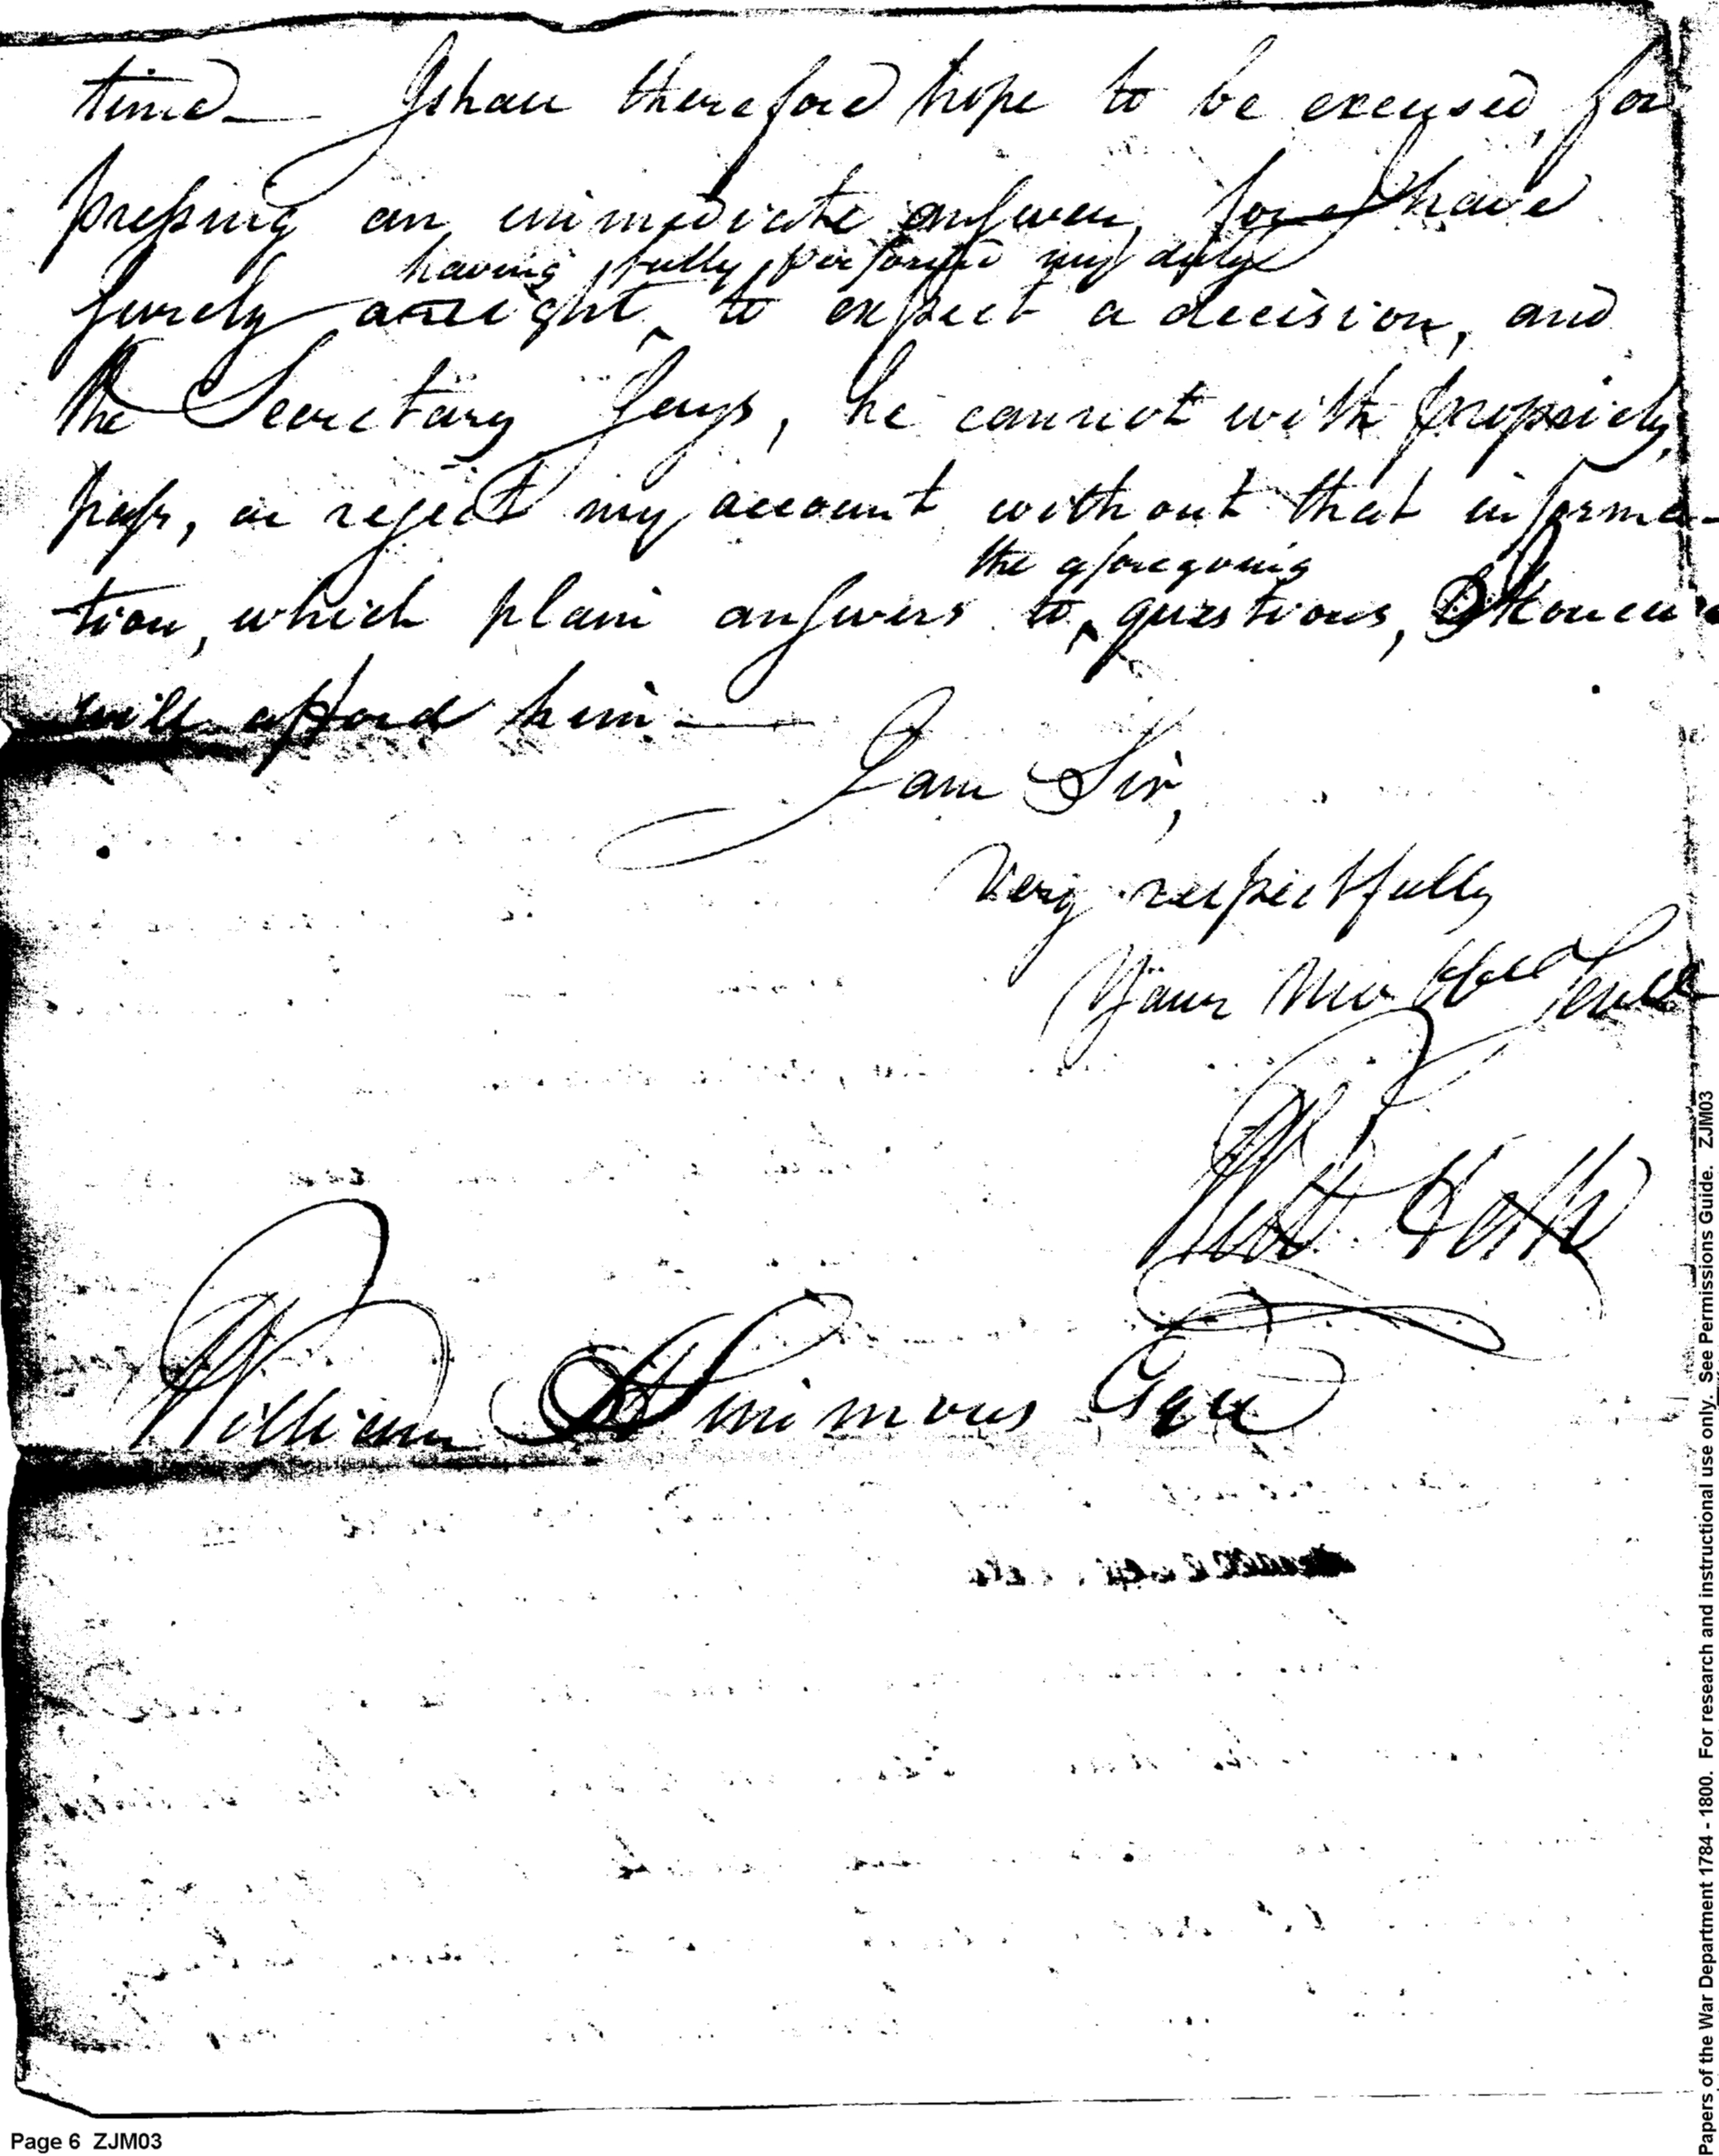 time — I shall therefore hope to be excused, for
pressing an immediate answer, for I have
having fully performed my duty
surely a right, to expect a decision, and
the Secretary says, he cannot with propriety,
pass, or reject my account without that informa-
the aforegoing
tion, which plain answers to, questions,
will afford him —
I am Sir,
Very respectfully
Your Mo Obed Servt
William Simmons Esqr
Page 6 ZJM03
Papers of the War Department 1784 - 1800. For research and instructional use only. See Permissions Guide. ZJM03